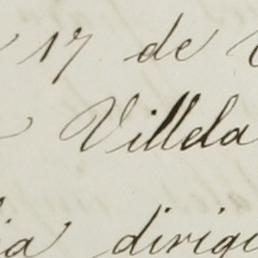 17 de
Villela
dirigi